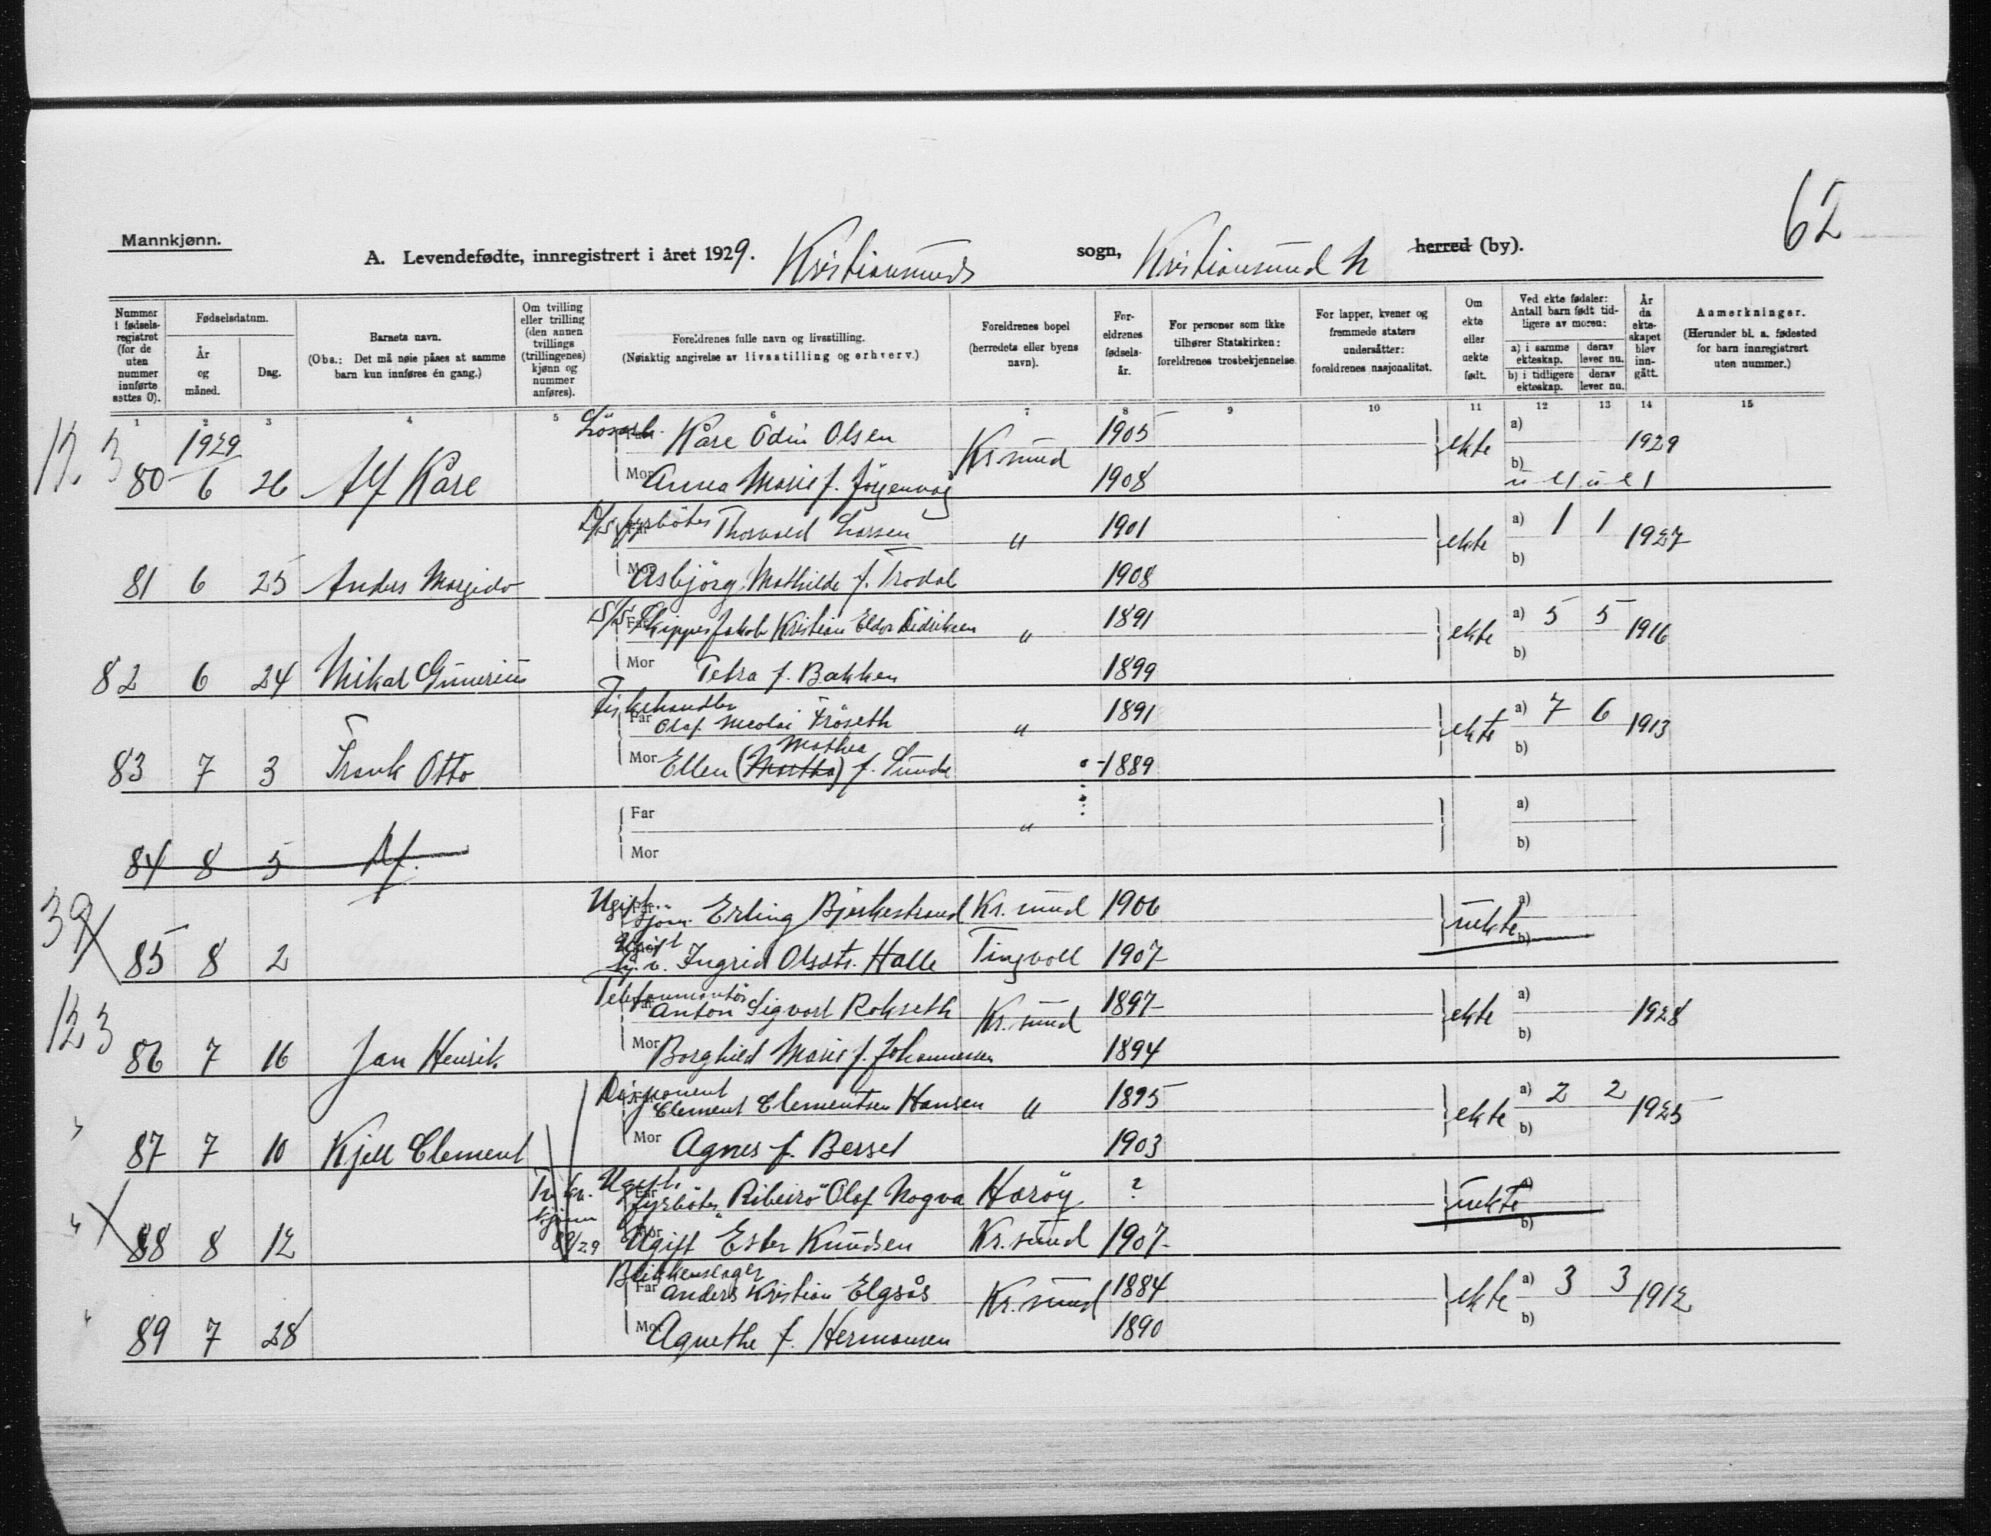 62
Mannkjønn.
A. Levendefødte, innregistrert i året 1929. Kristiansunds sogn, Kristiansund N herred (by).
Nummer i fødsels-registret (for de uten nummer innførte settes 0).
Fødselsdatum.
År og måned.
Dag.
Barnets navn.
(Obs.: Det må nøie påses at samme barn kun innføres én gang.)
Om tvilling eller trilling (den annen tvillings (trillingenes) kjønn og nummer anføres).
Foreldrenes fulle navn og livsstilling.
(Nøiaktig angivelse av livsstilling og erhverv.)
Foreldrenes bopel (herredets eller byens navn).
For-eldrenes fødsels-år.
For personer som ikke tilhører Statskirken: foreldrenes trosbekjennelse.
For lapper, kvener og fremmede staters undersåtter: foreldrenes nasjonalitet.
Om ekte eller uekte født.
Ved ekte fødsler: Antall barn født tid-ligere av moren:
a) i samme ekteskap.
derav lever nu.
b) i tidligere ekteskap.
derav lever nu.
År da ekte-skapet blev inn-gått.
Anmerkninger.
(Herunder bl. a. fødested for barn innregistrert uten nummer.)
1 2 3 4 5 6 7 8 9 10 11 12 13 14 15
Løsarb. Far Kåre Odin Olsen Kr.sund 1905 ekte a) 1929
12 3 80 1929 6 26 Alf Kåre Mor Anna Marie f. Jörgenvåg 1908 b)
D/S fyrböter Far Thorvald Larsen " 1901 ekte a) 1 1 1927
81 6 25 Anders Margido Mor Asbjörg Mathilde f. Trodal 1908 b)
S/S Far Skipper Jakob Kristian Elder Didriksen " 1891 ekte a) 5 5 1916
82 6 24 Mikal Gunerius Mor Petra f. Bakken 1899 b)
Fiskehandler Far Olaf Nicolai Fröseth " 1891 ekte a) 7 6 1913
83 7 3 Frank Otto Mor Ellen (Martha) Mathea f. Sunde 1889 b)
Far " a)
84 8 5 Df. Mor b)
Ugift Far Sjöm. Erling Bjerkestrand Kr.sund 1906 uekte a)
39 85 8 2 Ugift Mor Ingrid Olsdtr. Halle Tingvoll 1907 b)
Telefonmontör Far Anton Sigvart Rokseth Kr.sund 1897 ekte a) 1928
12 3 86 7 16 Jan Henrik Mor Borghild Marie f. Johannessen 1894 b)
Disponent Far Clement Clementsen Hansen " 1895 ekte a) 2 2 1925
87 7 10 Kjell Clement Mor Agnes f. Berset 1903 b)
Ugift Far fyrböter "Ribeiro" Olaf Nogva Haröy ? uekte a)
" 88 8 12 Tv. kv. kjönn 89/29 Mor Ugift Ester Knudsen Kr.sund 1907 b)
Blikkenslager Far Anders Kristian Elgsås Kr.sund 1884 ekte a) 3 3 1912
" 89 7 28 Mor Agnethe f. Hermansen 1890 b)